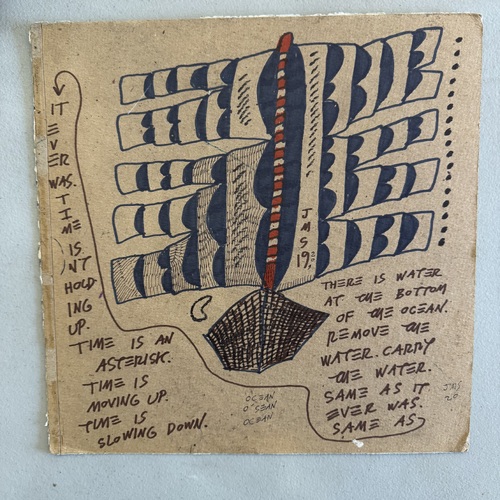 THERE IS WATER
AT THE BOTTOM
OF THE OCEAN.
REMOVE THE
WATER. CARRY
THE WATER.
SAME AS IT
EVER WAS.
SAME AS
IT
EVER
WAS.
TIME
IS
N'T
HOLD
ING
UP.
TIME IS AN
ASTERISK.
TIME IS
MOVING UP.
TIME IS
SLOWING DOWN.
OCEAN
O'SEAN
OCEAN
JMS
19
JMS
20